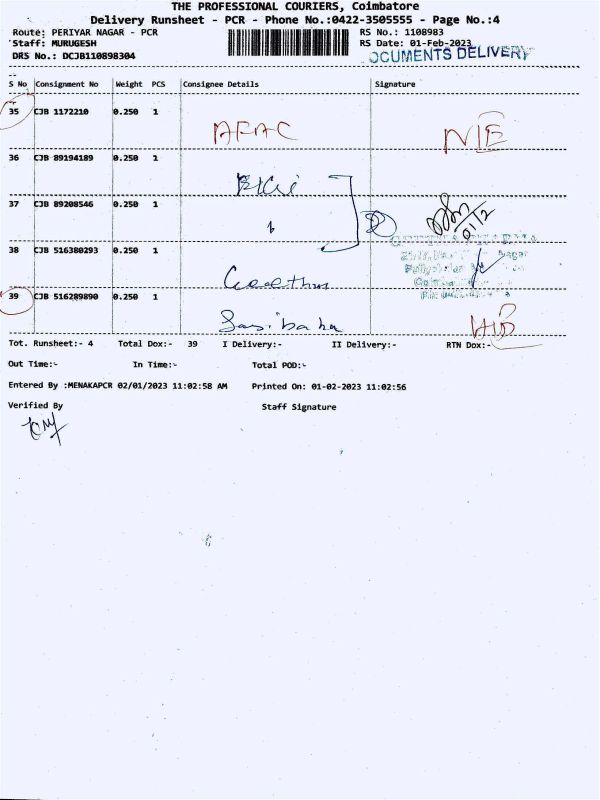 THE PROFESSIONAL COURIERS, Coimbatore
Delivery Runsheet - PCR - Phone No.:0422-3505555 - Page No.:4
Route: PERIYAR NAGAR - PCR
RS No.: 1108983
Staff: MURUGESH
RS Date: 01-Feb-2023
DRS No.: DCJB110898304
DOCUMENTS DELIVERY
S No Consignment No Weight PCS Consignee Details Signature
35 CJB 1172210 0.250 1
AFAC
36 CJB 89194189 0.250 1
37 CJB 89208546 0.250 1
01/2
38 CJB 516380293 0.250 1
Nagar
39 CJB 516289890 0.250 1
Tot. Runsheet:- 4 Total Dox:- 39 I Delivery:- II Delivery:- RTN Dox:-
Out Time:- In Time:- Total POD:-
Entered By :MENAKAPCR 02/01/2023 11:02:58 AM Printed On: 01-02-2023 11:02:56
Verified By Staff Signature